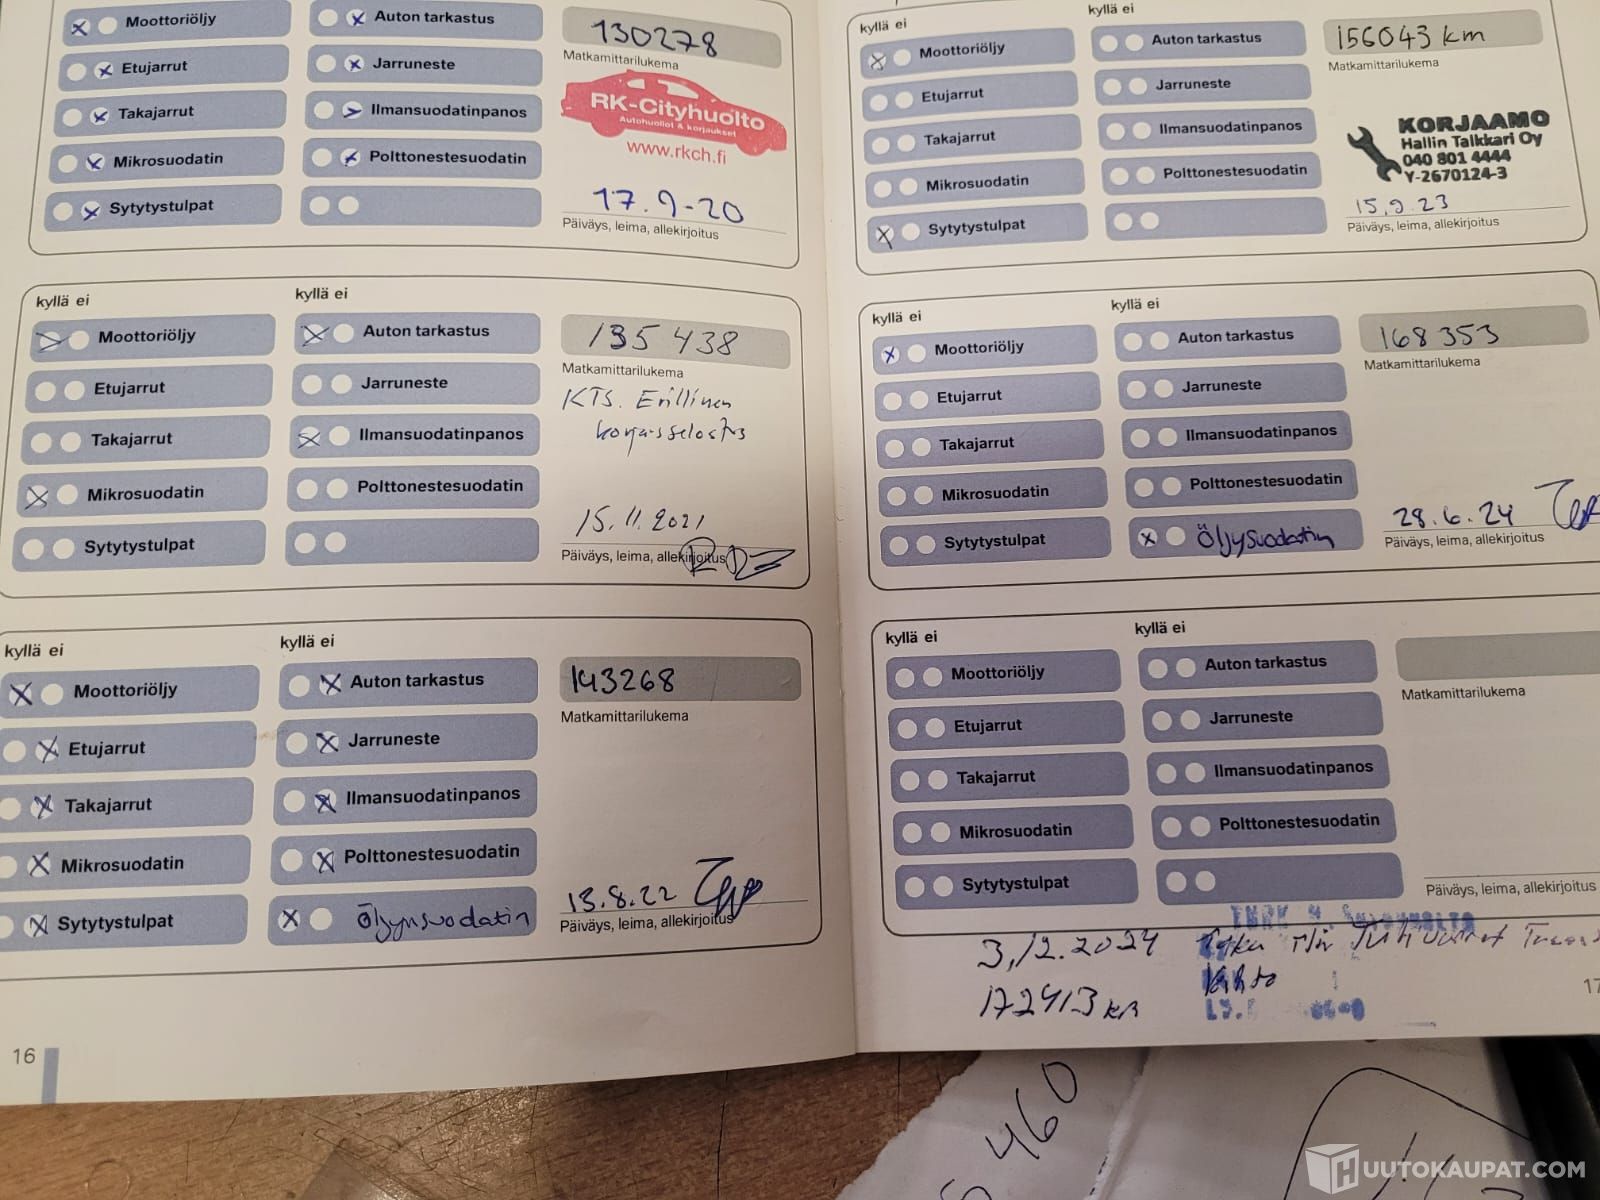 Moottoriöljy
Etujarrut
Takajarrut
Mikrosuodatin
Sytytystulpat
Auton tarkastus
Jarruneste
Ilmansuodatinpanos
Polttonestesuodatin
130278
Matkamittarilukema
RK-Cityhuolto
Autohuollot & korjaukset
www.rkch.fi
17.9-20
Päiväys, leima, allekirjoitus
kyllä ei
kyllä ei
Moottoriöljy
Etujarrut
Takajarrut
Mikrosuodatin
Sytytystulpat
Auton tarkastus
Jarruneste
Ilmansuodatinpanos
Polttonestesuodatin
135 438
Matkamittarilukema
KTS. Erillinen
15.11.2021
Päiväys, leima, allekirjoitus
kyllä ei
kyllä ei
Moottoriöljy
Etujarrut
Takajarrut
Mikrosuodatin
Sytytystulpat
Auton tarkastus
Jarruneste
Ilmansuodatinpanos
Polttonestesuodatin
Öljynsuodatin
143268
Matkamittarilukema
13.8.22
Päiväys, leima, allekirjoitus
16
kyllä ei
kyllä ei
Moottoriöljy
Etujarrut
Takajarrut
Mikrosuodatin
Sytytystulpat
Auton tarkastus
Jarruneste
Ilmansuodatinpanos
Polttonestesuodatin
156043 km
Matkamittarilukema
KORJAAMO
Hallin Talkkari Oy
040 801 4444
Y-2670124-3
15.9.23
Päiväys, leima, allekirjoitus
kyllä ei
kyllä ei
Moottoriöljy
Etujarrut
Takajarrut
Mikrosuodatin
Sytytystulpat
Auton tarkastus
Jarruneste
Ilmansuodatinpanos
Polttonestesuodatin
Öljysuodatin
168 353
Matkamittarilukema
28.6.24
Päiväys, leima, allekirjoitus
kyllä ei
kyllä ei
Moottoriöljy
Etujarrut
Takajarrut
Mikrosuodatin
Sytytystulpat
Auton tarkastus
Jarruneste
Ilmansuodatinpanos
Polttonestesuodatin
Matkamittarilukema
Päiväys, leima, allekirjoitus
3,12.2024
172413 km
Vaihto
17
460
HUUTOKAUPAT.COM